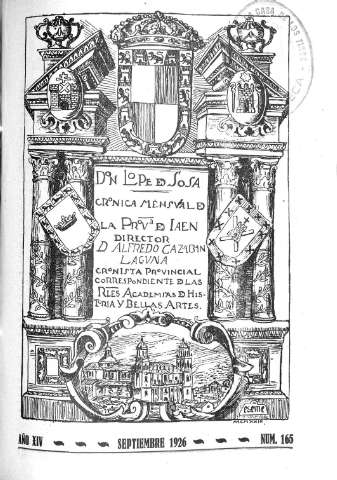 DON LOPE D SOSA
CRONICA MENSVAL D
LA PROVª D JAEN
DIRECTOR
D ALFREDO CAZABAN
LAGUNA
CRONISTA PROVINCIAL
CORRESPONDIENTE D LAS
RLES ACADEMIAS D HIS-
TORIA Y BELLAS ARTES.
MCMXXIII
AÑO XIV SEPTIEMBRE 1926 NUM. 165